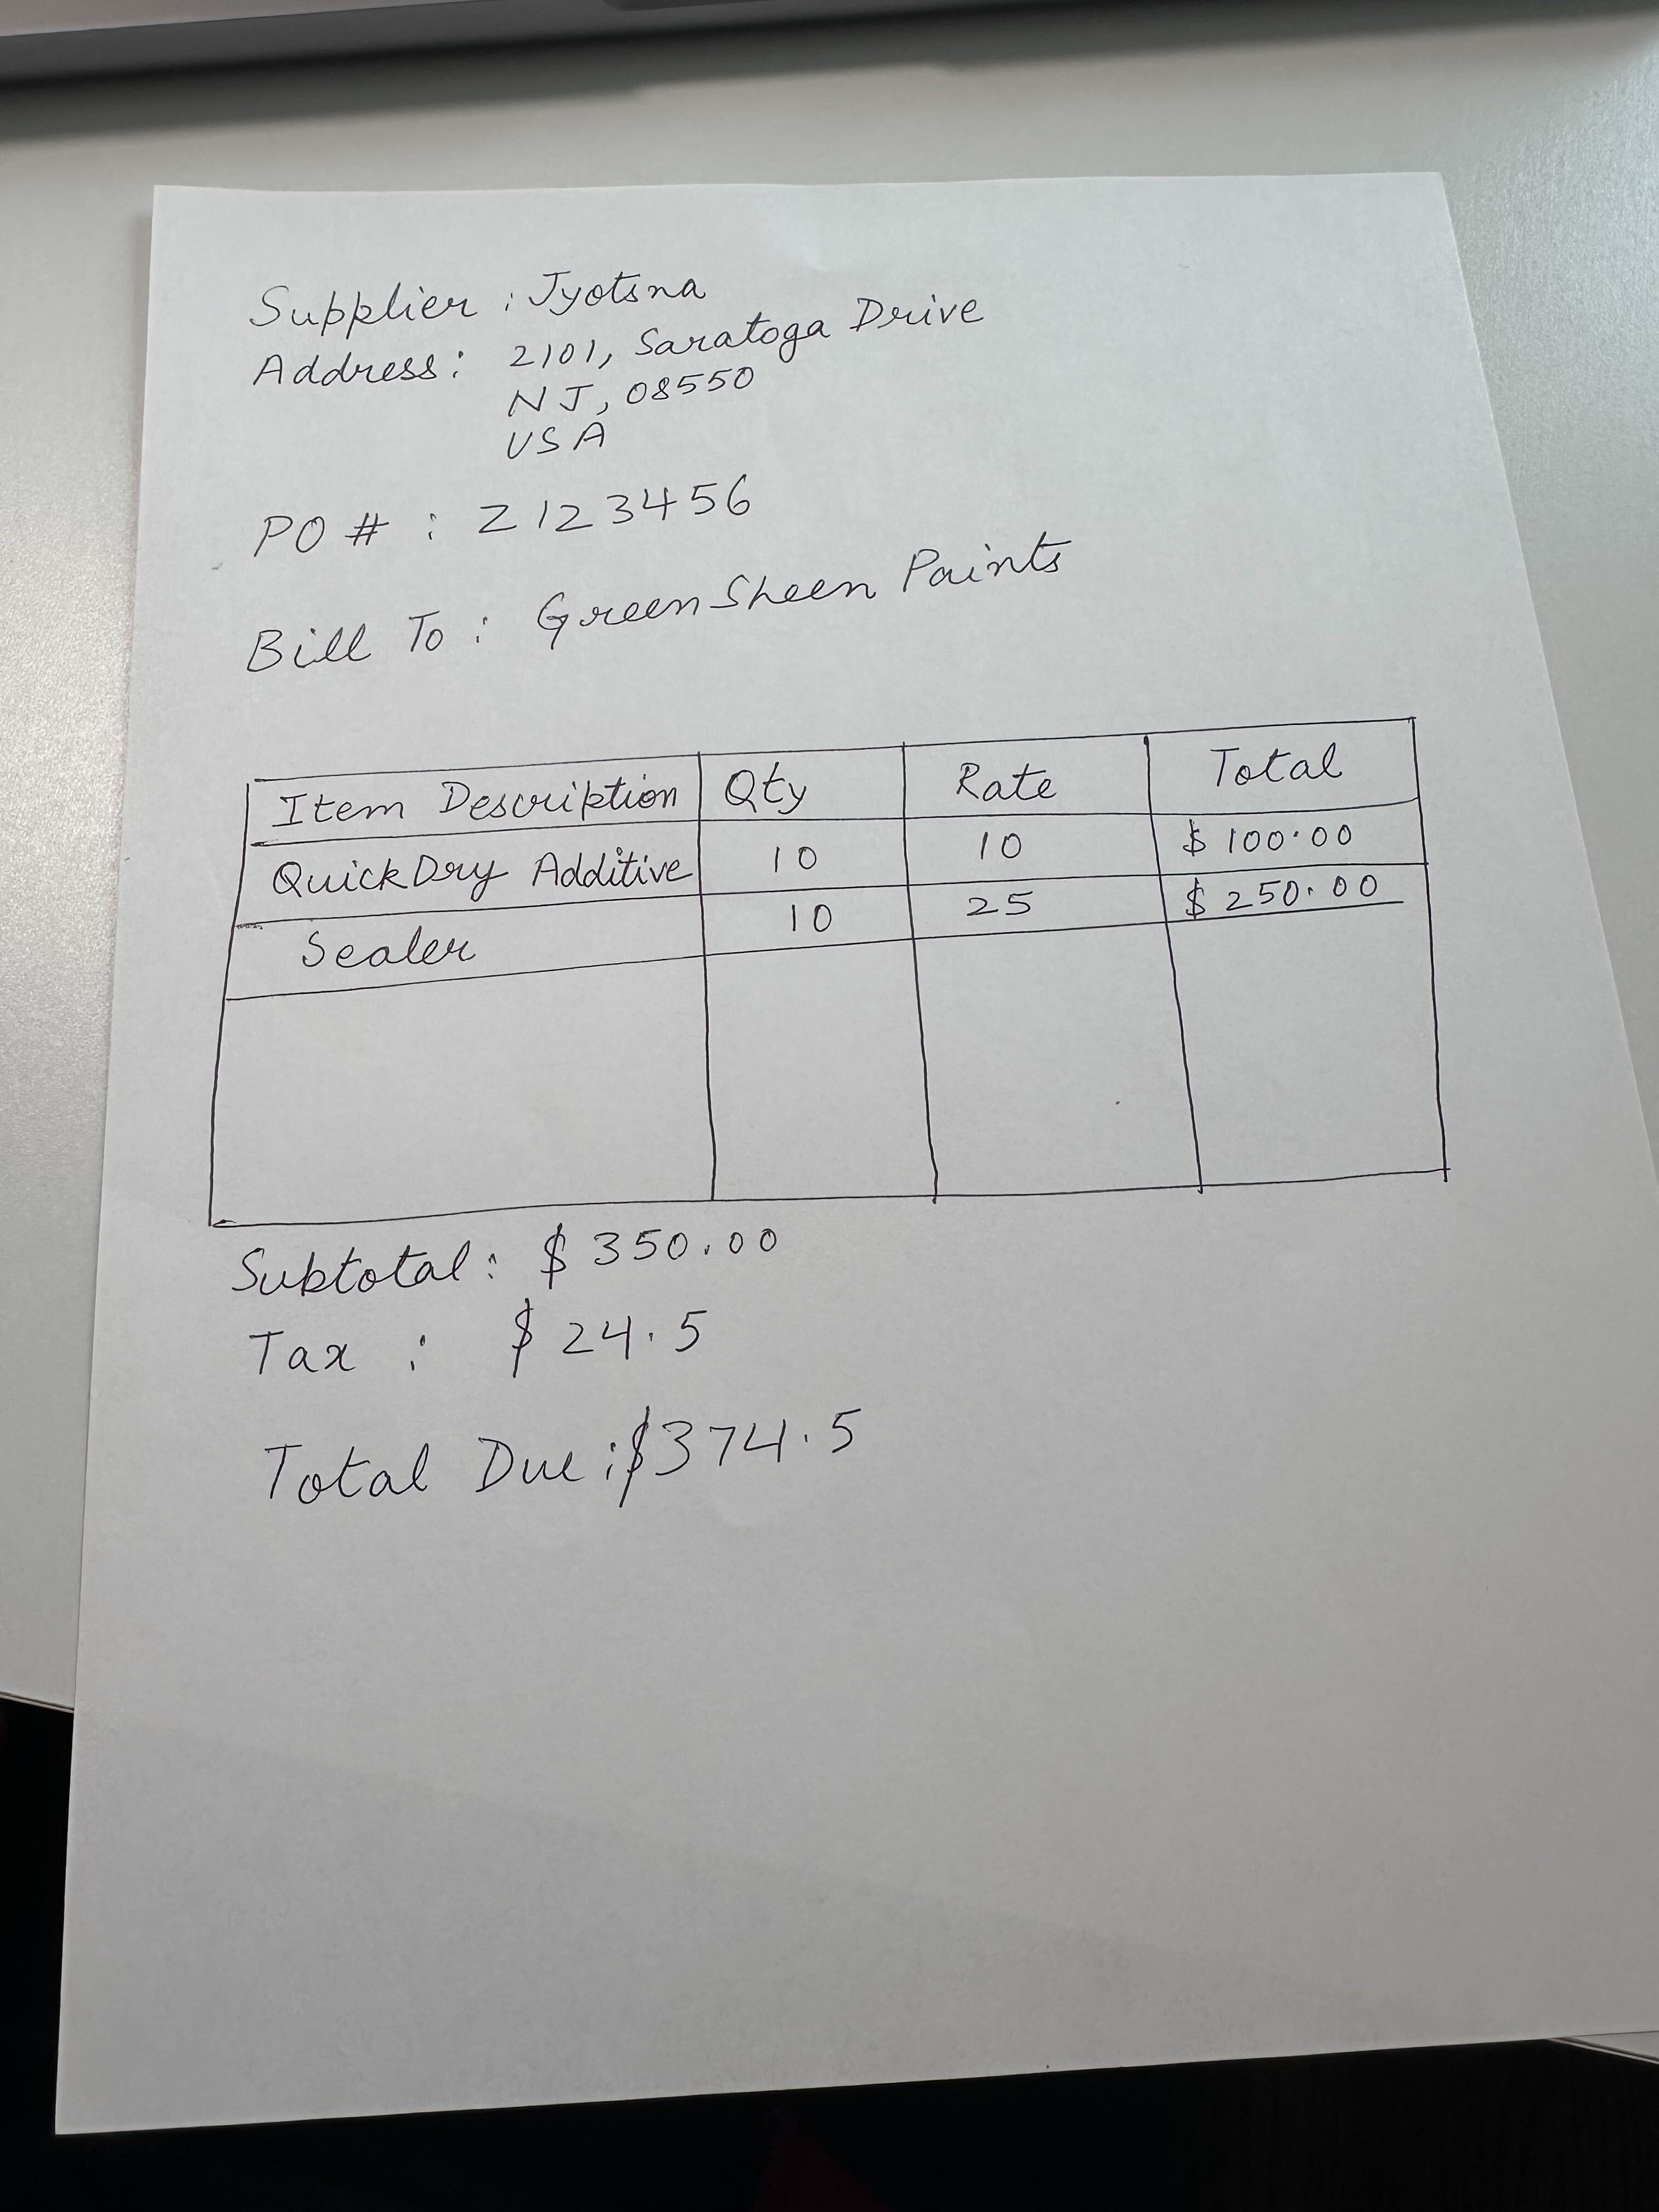 Supplier : Jyotsna
Address : 2101, Saratoga Drive
NJ, 08550
USA
PO # : Z123456
Bill To : GreenSheen Paints
Item Description Qty Rate Total
QuickDry Additive 10 10 $ 100.00
Sealer 10 25 $ 250.00
Subtotal : $ 350.00
Tax : $ 24.5
Total Due : $374.5